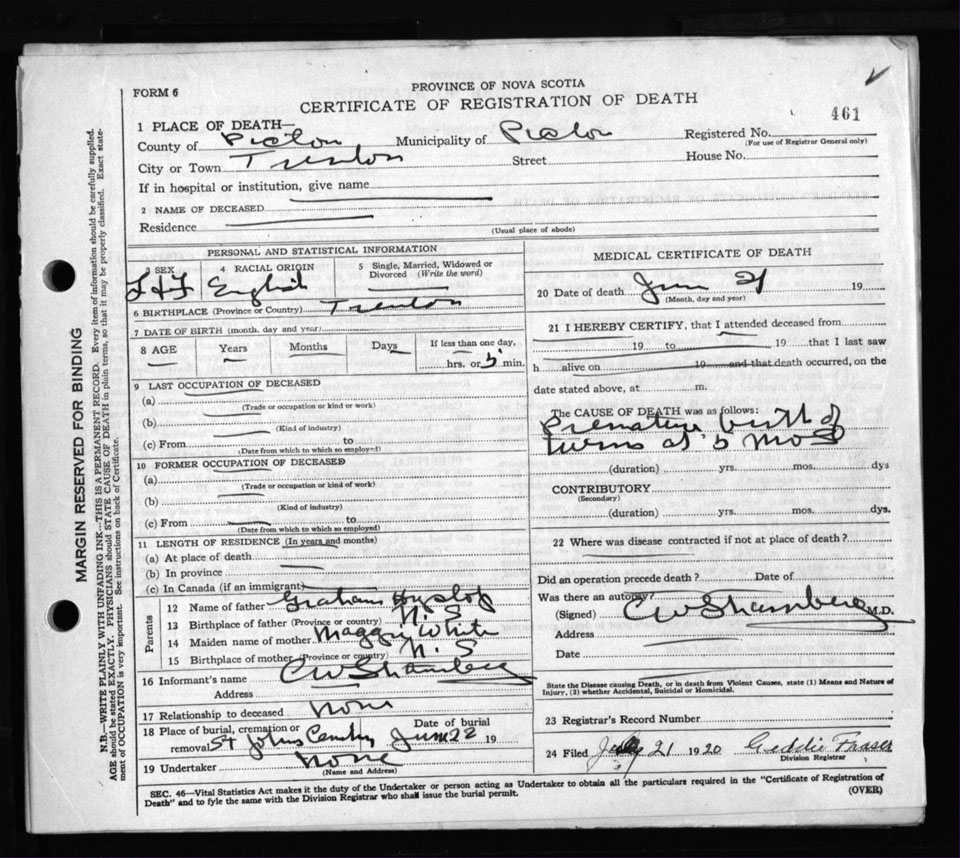 FORM 6
PROVINCE OF NOVA SCOTIA
CERTIFICATE OF REGISTRATION OF DEATH
461
1 PLACE OF DEATH—
County of Pictou Municipality of Pictou Registered No.
(For use of Registrar General only)
City or Town Trenton Street House No.
If in hospital or institution, give name
2 NAME OF DECEASED
Residence
(Usual place of abode)
PERSONAL AND STATISTICAL INFORMATION
3 SEX 4 RACIAL ORIGIN 5 Single, Married, Widowed or Divorced (Write the word)
F & F English
6 BIRTHPLACE (Province or Country) Trenton
7 DATE OF BIRTH (month, day and year)
8 AGE Years Months Days If less than one day,
hrs. or 5 min.
9 LAST OCCUPATION OF DECEASED
(a)
(Trade or occupation or kind or work)
(b)
(Kind of industry)
(c) From to
(Date from which to which so employed)
10 FORMER OCCUPATION OF DECEASED
(a)
(Trade or occupation or kind of work)
(b)
(Kind of industry)
(c) From to
(Date from which to which so employed)
11 LENGTH OF RESIDENCE (In years and months)
(a) At place of death
(b) In province
(c) In Canada (if an immigrant)
Parents
12 Name of father Graham Hyslop
13 Birthplace of father (Province or country) N. S
14 Maiden name of mother Maggie White
15 Birthplace of mother (Province or country) N. S
16 Informant's name C W Stramberg
Address
17 Relationship to deceased None
18 Place of burial, cremation or Date of burial
removal St Johns Cemetry June 22 19
19 Undertaker None
(Name and Address)
MEDICAL CERTIFICATE OF DEATH
20 Date of death June 21 19
(Month, day and year)
21 I HEREBY CERTIFY, that I attended deceased from
19 to 19 that I last saw
h alive on 19 and that death occurred, on the
date stated above, at m.
The CAUSE OF DEATH was as follows:
Premature birth of
twins at 5 Mos
(duration) yrs. mos. dys
CONTRIBUTORY
(Secondary)
(duration) yrs. mos. dys.
22 Where was disease contracted if not at place of death?
Did an operation precede death? Date of
Was there an autopsy?
(Signed) C W Stramberg M.D.
Address
Date
State the Disease causing Death, or in death from Violent Causes, state (1) Means and Nature of
Injury, (2) whether Accidental, Suicidal or Homicidal.
23 Registrar's Record Number
24 Filed July 21 1920 Geddie Fraser
Division Registrar
SEC. 46—Vital Statistics Act makes it the duty of the Undertaker or person acting as Undertaker to obtain all the particulars required in the "Certificate of Registration of
Death" and to fyle the same with the Division Registrar who shall issue the burial permit. (OVER)
MARGIN RESERVED FOR BINDING
N.B.—WRITE PLAINLY WITH UNFADING INK—THIS IS A PERMANENT RECORD. Every item of information should be carefully supplied.
AGE should be stated EXACTLY. PHYSICIANS should STATE CAUSE OF DEATH in plain terms, so that it may be properly classified. Exact state-
ment of OCCUPATION is very important. See instructions on back of Certificate.